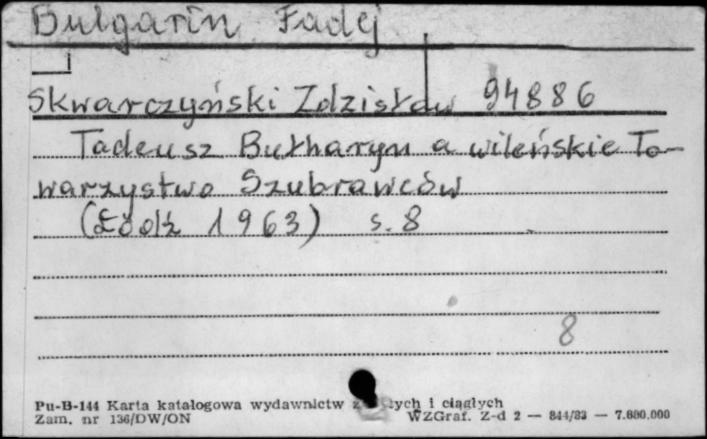 Bulgarin Fadej
Skwarczyński Zdzisław 94886
Tadeusz Bułharyn a wileńskie To-
warzystwo Szubrawców
(Łódź 1963) s. 8
8
Pu-B-144 Karta katalogowa wydawnictw ych i ciągłych
Zam. nr 136/DW/ON WZGraf. Z-d 2 — 844/83 — 7.000.000